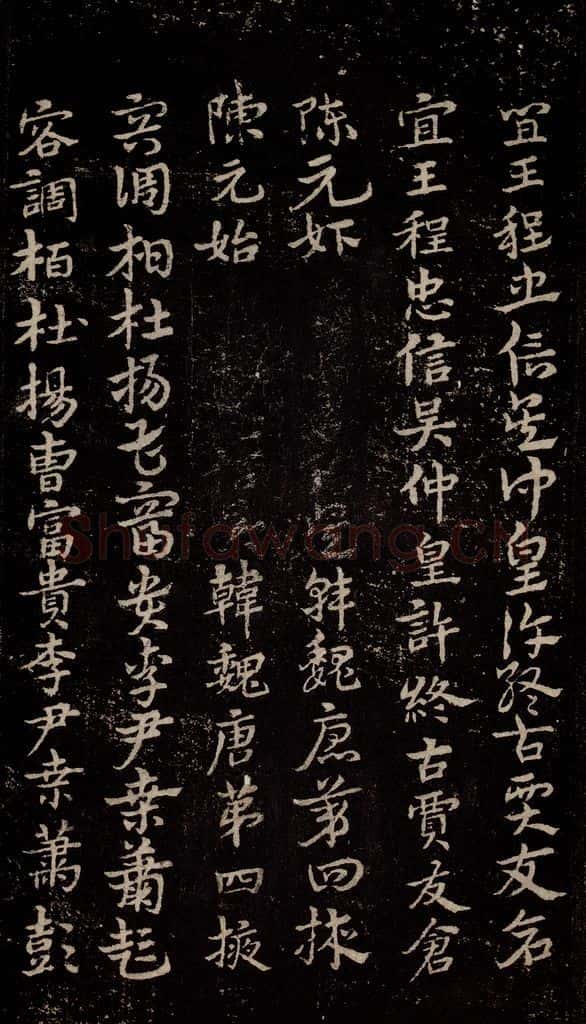 宜王程忠信吳仲皇許終古賈友倉
宜王程忠信吳仲皇許終古賈友倉
陳元始 韓魏唐苐四掖
陳元始 韓魏唐苐四掖
容調栢杜揚曹富貴李尹桒蕭彭
容調栢杜揚曹富貴李尹桒蕭彭
Shufawang.CN